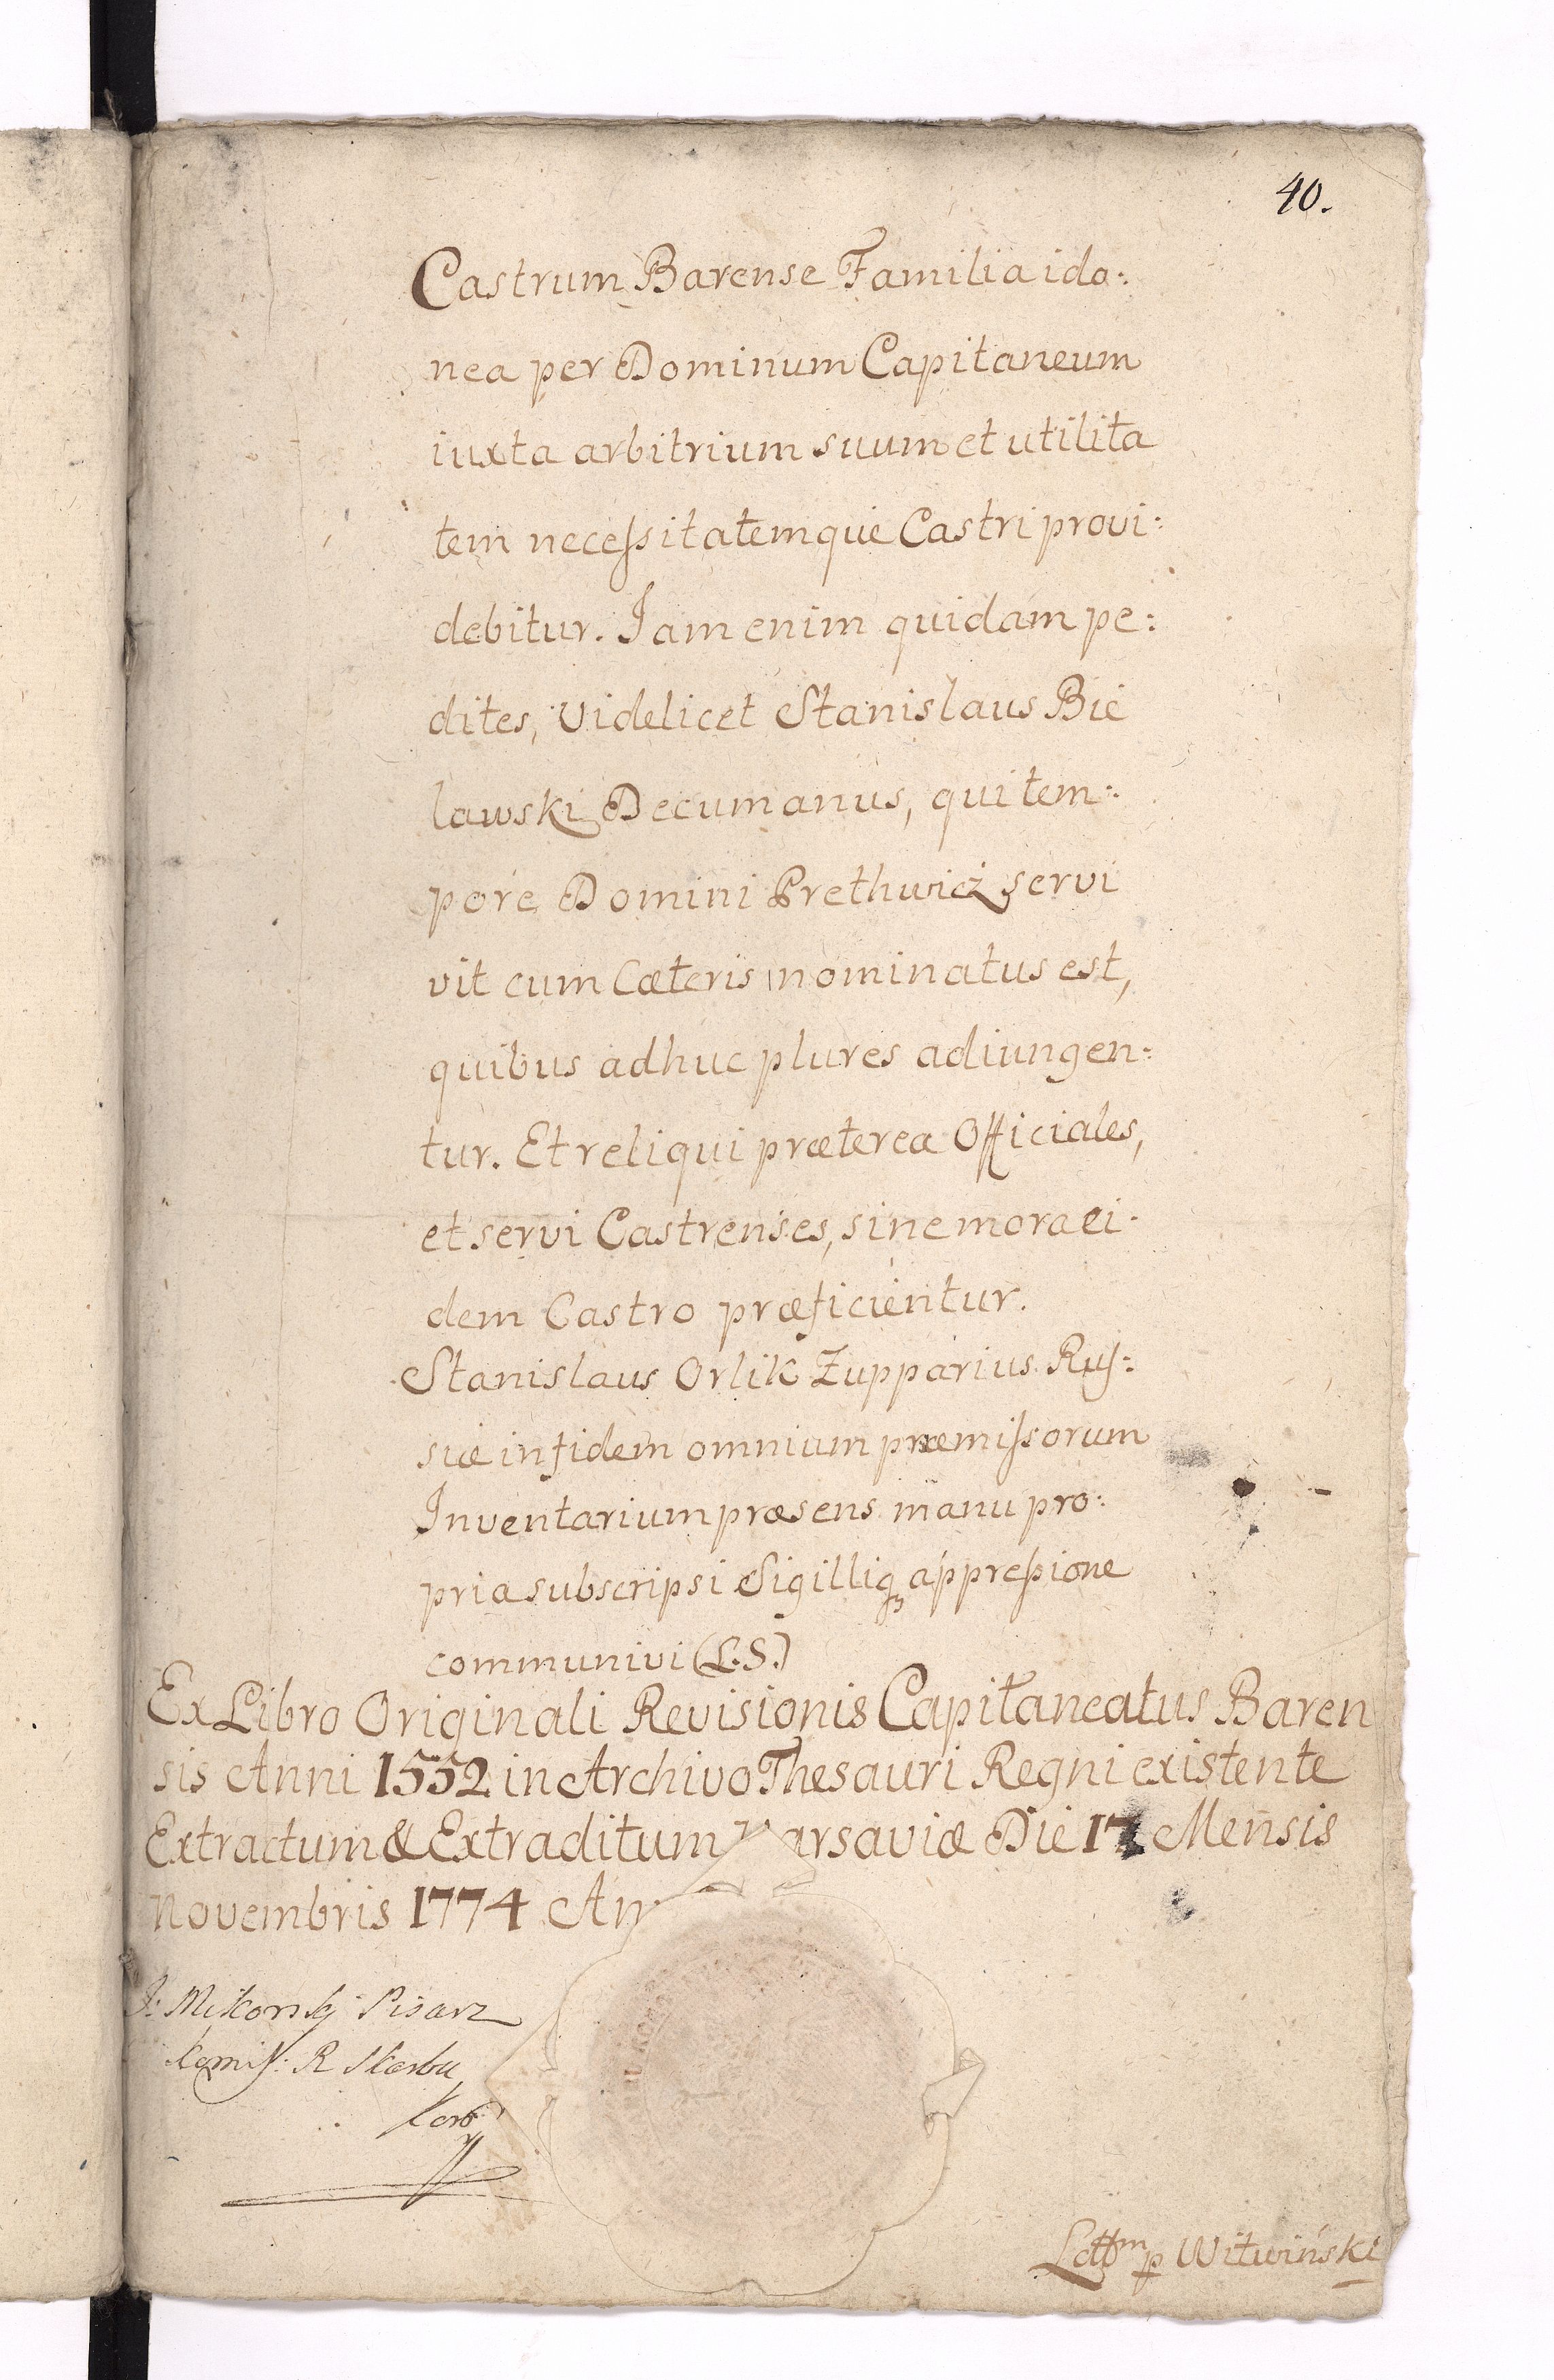 40.
Castrum Barense Familia ido:
nea per Dominum Capitaneum
iuxta arbitrium suum et utilita
tem neceſsitatemque Castri provi:
debitur. Iam enim quidam pe:
dites, videlicet Stanislaus Bie
lawski Decumanus, qui tem:
pore Domini Prethwicż servi
vit cum Cæteris nominatus est,
quibus adhuc plures adiungen:
tur. Et reliqui præterea Officiales,
et servi Castrenses, sine mora ei:
dem Castro præficientur.
Stanislaus Orlik Zupparius Ruſ:
siæ in fidem omnium præmiſsorum
Inventarium præsens manu pro:
pria subscripsi Sigilliqꝫ appreßione
communivi (L.S.)
Ex Libro Originali Revisionis Capitaneatus Baren
sis Anni 1552 in Archivo Thesauri Regni existente
Extractum & Extraditum Varsaviæ Die 17 Mensis
Novembris 1774 An
J: Mikorski Pisarz
Komiſ: R Skarbu
Kor
Lectm p Witwiński